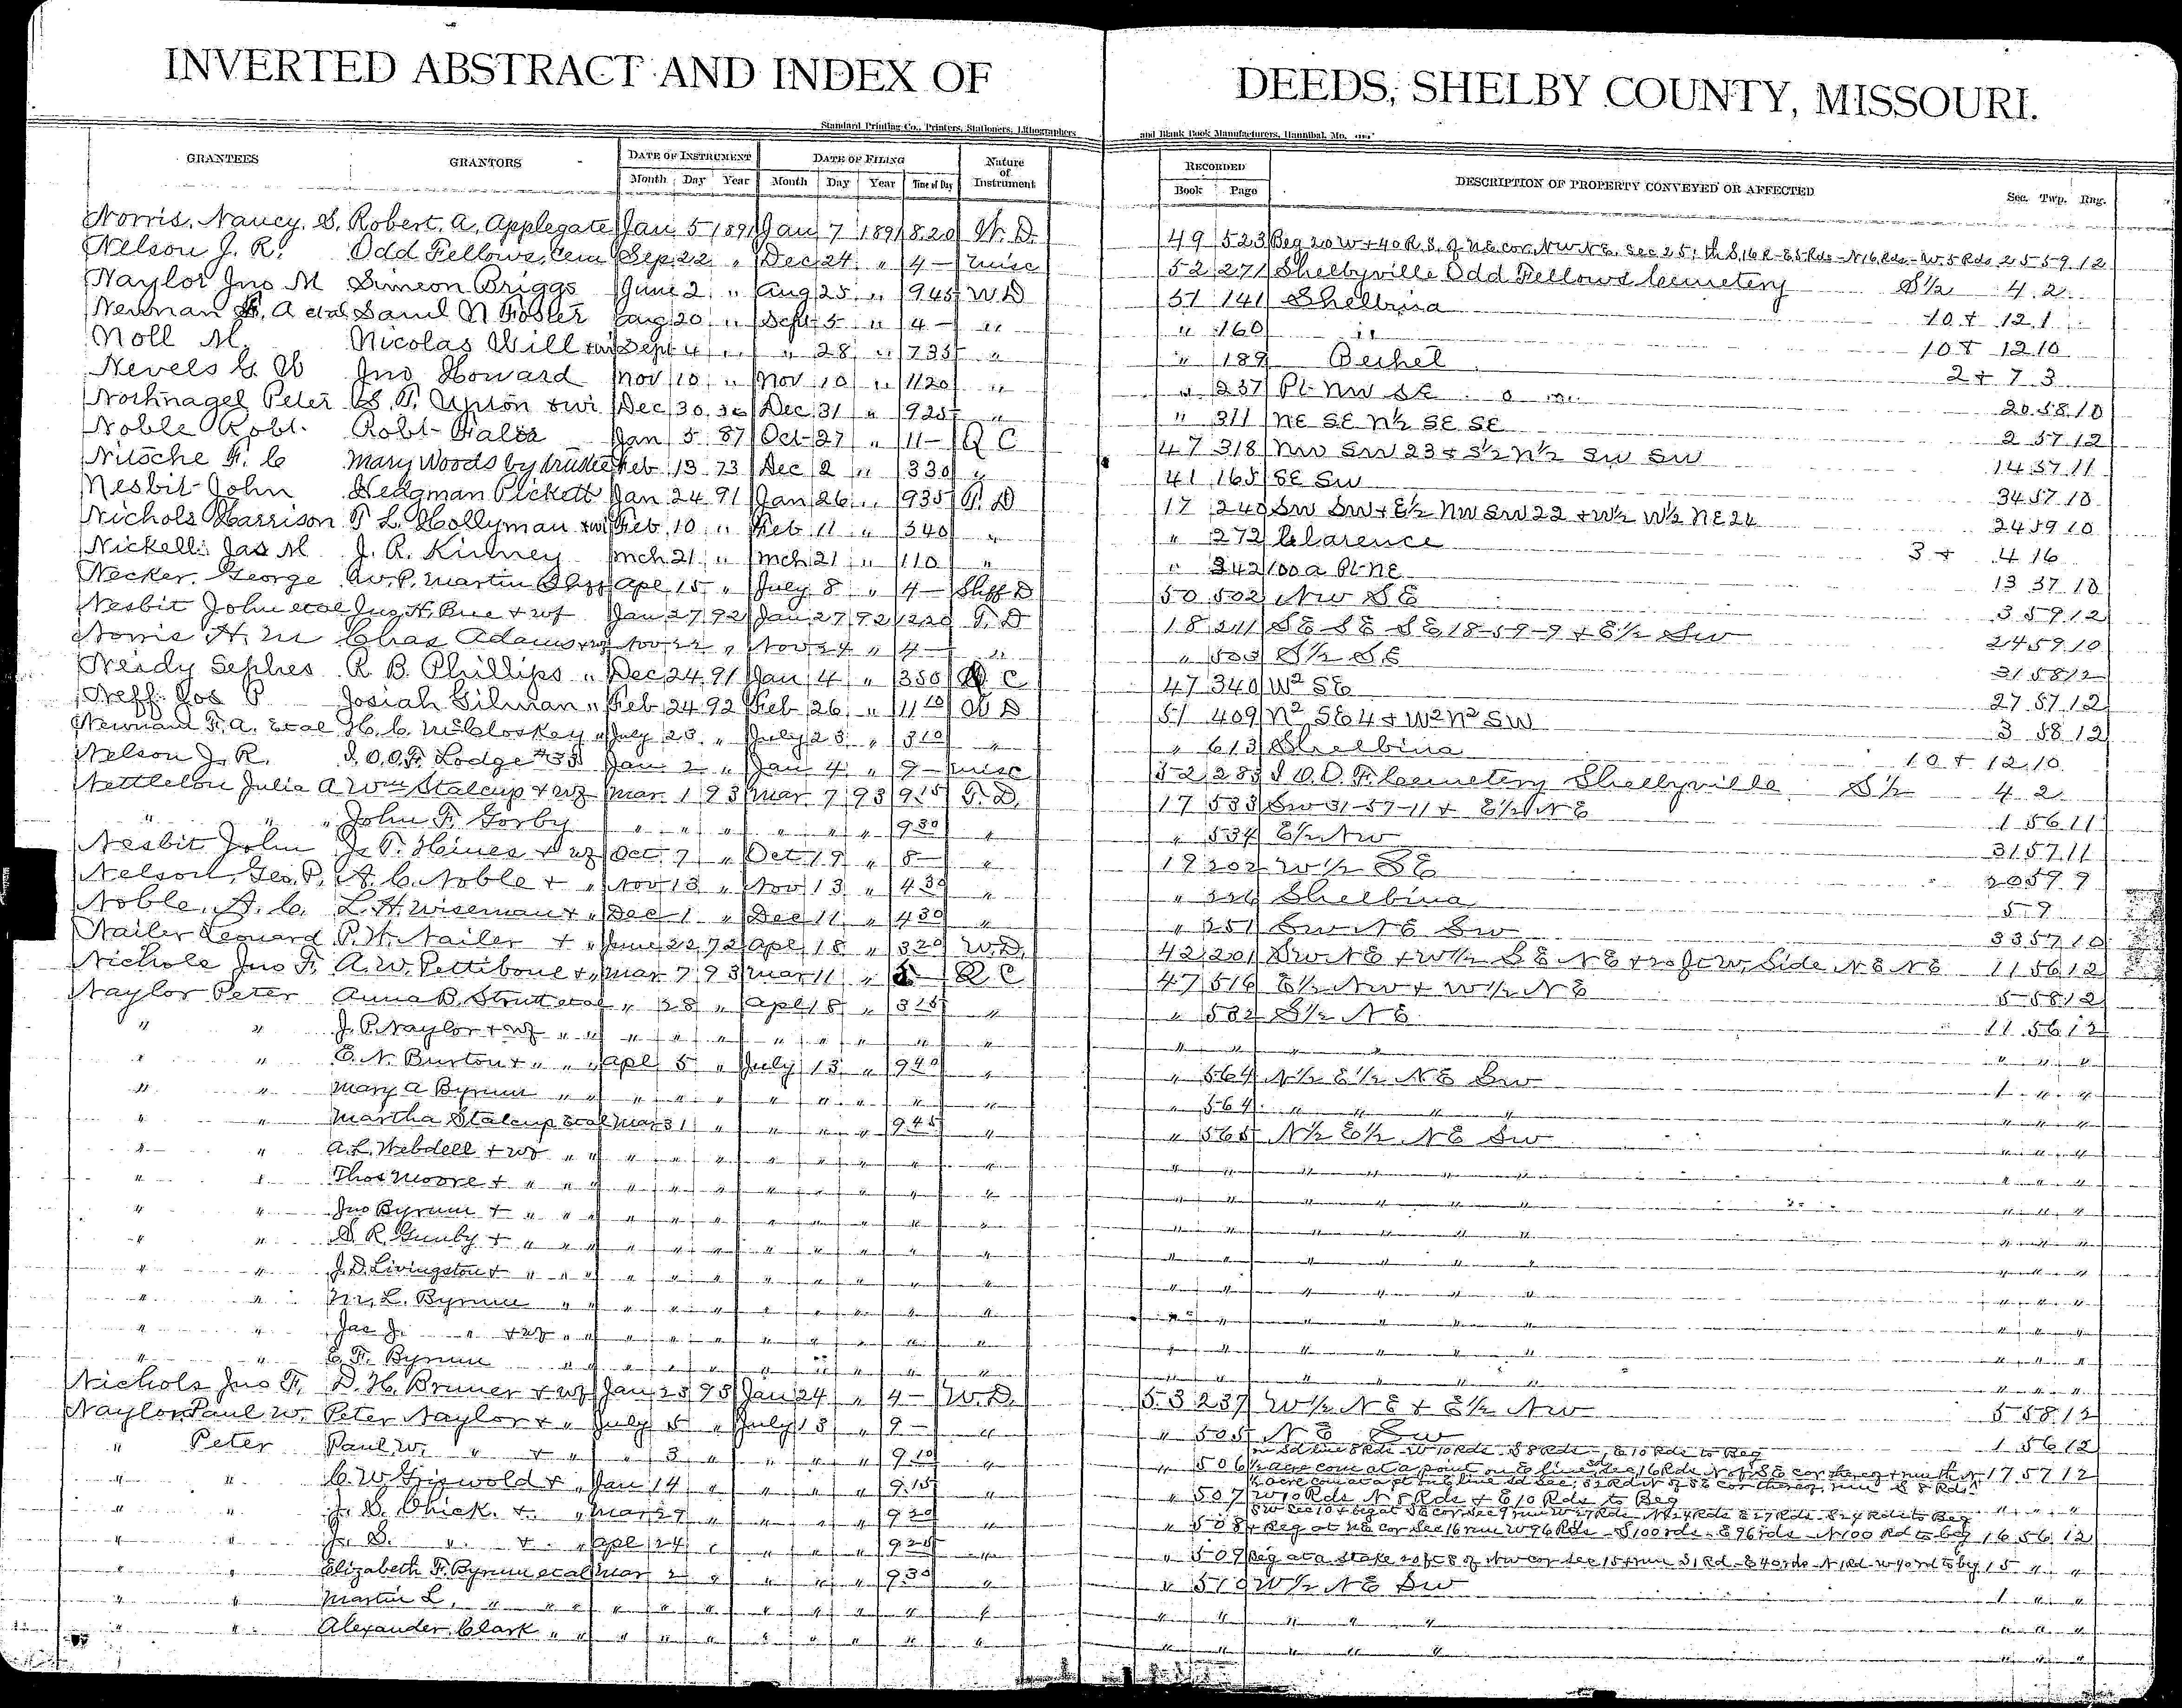 INVERTED ABSTRACT AND INDEX OF DEEDS, SHELBY COUNTY, MISSOURI.
Standard Printing Co., Printers, Stationers, Lithographers and Blank Book Manufacturers, Hannibal, Mo.
GRANTEES GRANTORS DATE OF INSTRUMENT DATE OF FILING Nature of Instrument RECORDED DESCRIPTION OF PROPERTY CONVEYED OR AFFECTED Sec. Twp. Rng.
Month Day Year Month Day Year Time of Day Book Page
Norris, Nancy. S. Robert. A. Applegate Jan 5 1891 Jan 7 1891 8.20 W. D. 49 523 Beg 20 W + 40 R. S. of N.E. cor. NW NE. Sec 25; th S. 16 R - E 5 Rds - N 16 Rds - W. 5 Rds 25 59 12
Nelson J. R. Odd Fellows, Cem Sep 22 " Dec 24 " 4- Misc 52 271 Shelbyville Odd Fellows Cemetery S½ 4 2
Naylor Jno M Simeon Briggs June 2 " Aug 25 " 945 W D 51 141 Shelbina 10 + 12 1
Newman F. A etal Saml N Foster Aug 20 " Sept 5 " 4- " " 160 " 10 + 12 10
Noll M. Nicolas Will + wi Sept 4 " " 28 " 735 " " 189 Bethel 2 + 7 3
Nevels G W Jno Howard Nov 10 " Nov 10 " 1120 " " 237 Pt NW SE 20 58 10
Nothnagel Peter S. P. Upton + wi Dec 30 36 Dec 31 " 925 " " 311 NE SE N½ SE SE 2 57 12
Noble Robt. Robt Jan 5 87 Oct 27 " 11- Q C 47 318 NW SW 23 + S½ N½ SW SW 14 57 11
Nitsche F. C Mary Woods by trustee Feb 13 73 Dec 2 " 330 " 41 165 SE SW 34 57 10
Nesbit John Hedgman Pickett Jan 24 91 Jan 26 " 935 T. D 17 240 SW SW + E½ NW SW 22 + W½ W½ NE 24 24 59 10
Nichols Harrison T L. Hollyman + wi Feb 10 " Feb 11 " 340 " " 272 Clarence 3 + 4 16
Nickell Jas M J. R. Kinney Mch 21 " Mch 21 " 110 " " 342 100 a Pt NE 13 57 10
Necker. George W. P. Martin Apl 15 " July 8 " 4- Shff D 50 502 NW SE 3 59 12
Nesbit John etal Jno. H. Bue + wf Jan 27 92 Jan 27 92 1220 T. D 18 211 SE SE SE 18-59-9 + E½ SW 24 59 10
Norris H. M Chas Adams + wf Nov 22 " Nov 24 " 4- " " 503 S½ SE 31 58 12
Neidy Sephes R B. Phillips " Dec 24 91 Jan 4 " 350 Q C 47 340 W² SE 27 57 12
Neff. Jos P Josiah Gilman " Feb 24 92 Feb 26 " 11 10 W D 51 409 N² SE 4 + W² N² SW 3 58 12
Newman F. A. etal H. C. McCloskey " July 23 " July 23 " 310 " " 613 Shelbina 10 + 12 10
Nelson J. R. I. O. O. F. Lodge #33 Jan 2 " Jan 4 " 9- Misc 52 285 I. O. O. F. Cemetery Shelbyville S½ 4 2
Nettleton Julia A Wm Stalcup + wf Mar 1 93 Mar 7 93 9.15 T. D. 17 533 SW 31-57-11 + E½ NE 1 56 11
" " " John F. Gorby " " " " " " 930 " " 534 E½ NW 31 57 11
Nesbit John J. T. Hines + wf Oct 7 " Oct 19 " 8- " 19 202 W½ SE 20 59 9
Nelson, Geo. P. A. C. Noble + " Nov 13 " Nov 13 " 430 " " 226 Shelbina 5 9
Noble. A. C. L. H. Wiseman + " Dec 1 " Dec 11 " 430 " " 251 SW NE SW 33 57 10
Nailer Leonard P. H. Nailer + " June 22 72 Apl 18 " 320 W. D. 42 201 SW NE + W½ SE NE + 20 ft W. Side NE NE 11 56 12
Nichols Jno F. A. W. Pettibone + " Mar 7 93 Mar 11 " Q C 47 516 E½ NW + W½ NE 5 58 12
Naylor Peter Anna B. Strutt etal " 28 " Apl 18 " 315 " " 532 S½ NE 11 56 12
" " J. P. Naylor + wf " " " " " " " " " " " " " " " "
" " E. N. Burton + " " " Apl 5 " July 13 " 940 " " 564 N½ E½ NE SW 1 " "
" " Mary A Byrum " " " " " " " " " " " 564 " " " " " " "
" " Martha Stalcup etal Mar 31 " " " " 945 " " 565 N½ E½ NE SW " " "
" " A. L. Webdell + wf " " " " " " " " " " " " " " " " " "
" " Thos Moore + " " " " " " " " " " " " " " " " " " "
" " Jno Byrum + " " " " " " " " " " " " " " " " " " "
" " S. R. Gunby + " " " " " " " " " " " " " " " " " " "
" " J. D. Livingston + " " " " " " " " " " " " " " " " " " "
" " M. L. Byrum " " " " " " " " " " " " " " " " " "
" " Jas J. " + wf " " " " " " " " " " " " " " " " " "
" " E. F. Byrum " " " " " " " " " " " " " " " " " "
Nichols Jno F. D. H. Bruner + wf Jan 23 93 Jan 24 " 4- W. D. 53 237 W½ NE + E½ NW 5 58 12
Naylor Paul W. Peter Naylor + " July 5 " July 13 " 9- " " 505 NE SW 1 56 12
" Peter Paul W. " + " " 3 " " " " 910 " " 506 ½ acre com at a point on E line sd Sec 16 Rds N of SE cor thereof + run th N on sd line 8 Rds W 10 Rds S 8 Rds E 10 Rds to Beg 17 57 12
" " C. W. Griswold + " Jan 14 " " " " 9.15 " " 507 ½ acre com at a pt on E line sd Sec. 32 Rds N of SE cor thereof, run S 8 Rds W 10 Rds N 8 Rds + E 10 Rds to Beg " " "
" " J. S. Chick. + " Mar 29 " " " " 920 " " 508 SW Sec 10 + beg at SE cor Sec 9 run W 27 Rds N 24 Rds E 27 Rds S 24 Rds to Beg + Beg at NE cor Sec 16 run W 96 Rds - S 100 rds - E 96 rds - N 100 Rd to beg 16 56 12
" " J. S. " + " Apl 24 " " " " 925 " " 509 Beg at a Stake 20 ft S of NW cor Sec 15 + run S 1 Rd - E 40 rds - N 1 Rd - W 40 rd to beg 15 " "
" " Elizabeth F. Byrum etal Mar 2 " " " " 930 " " 510 W½ NE SW 1 " "
" " Martin L. " " " " " " " " " " " " " " " " " "
" " Alexander Clark " " " " " " " " " " " " " " " " "